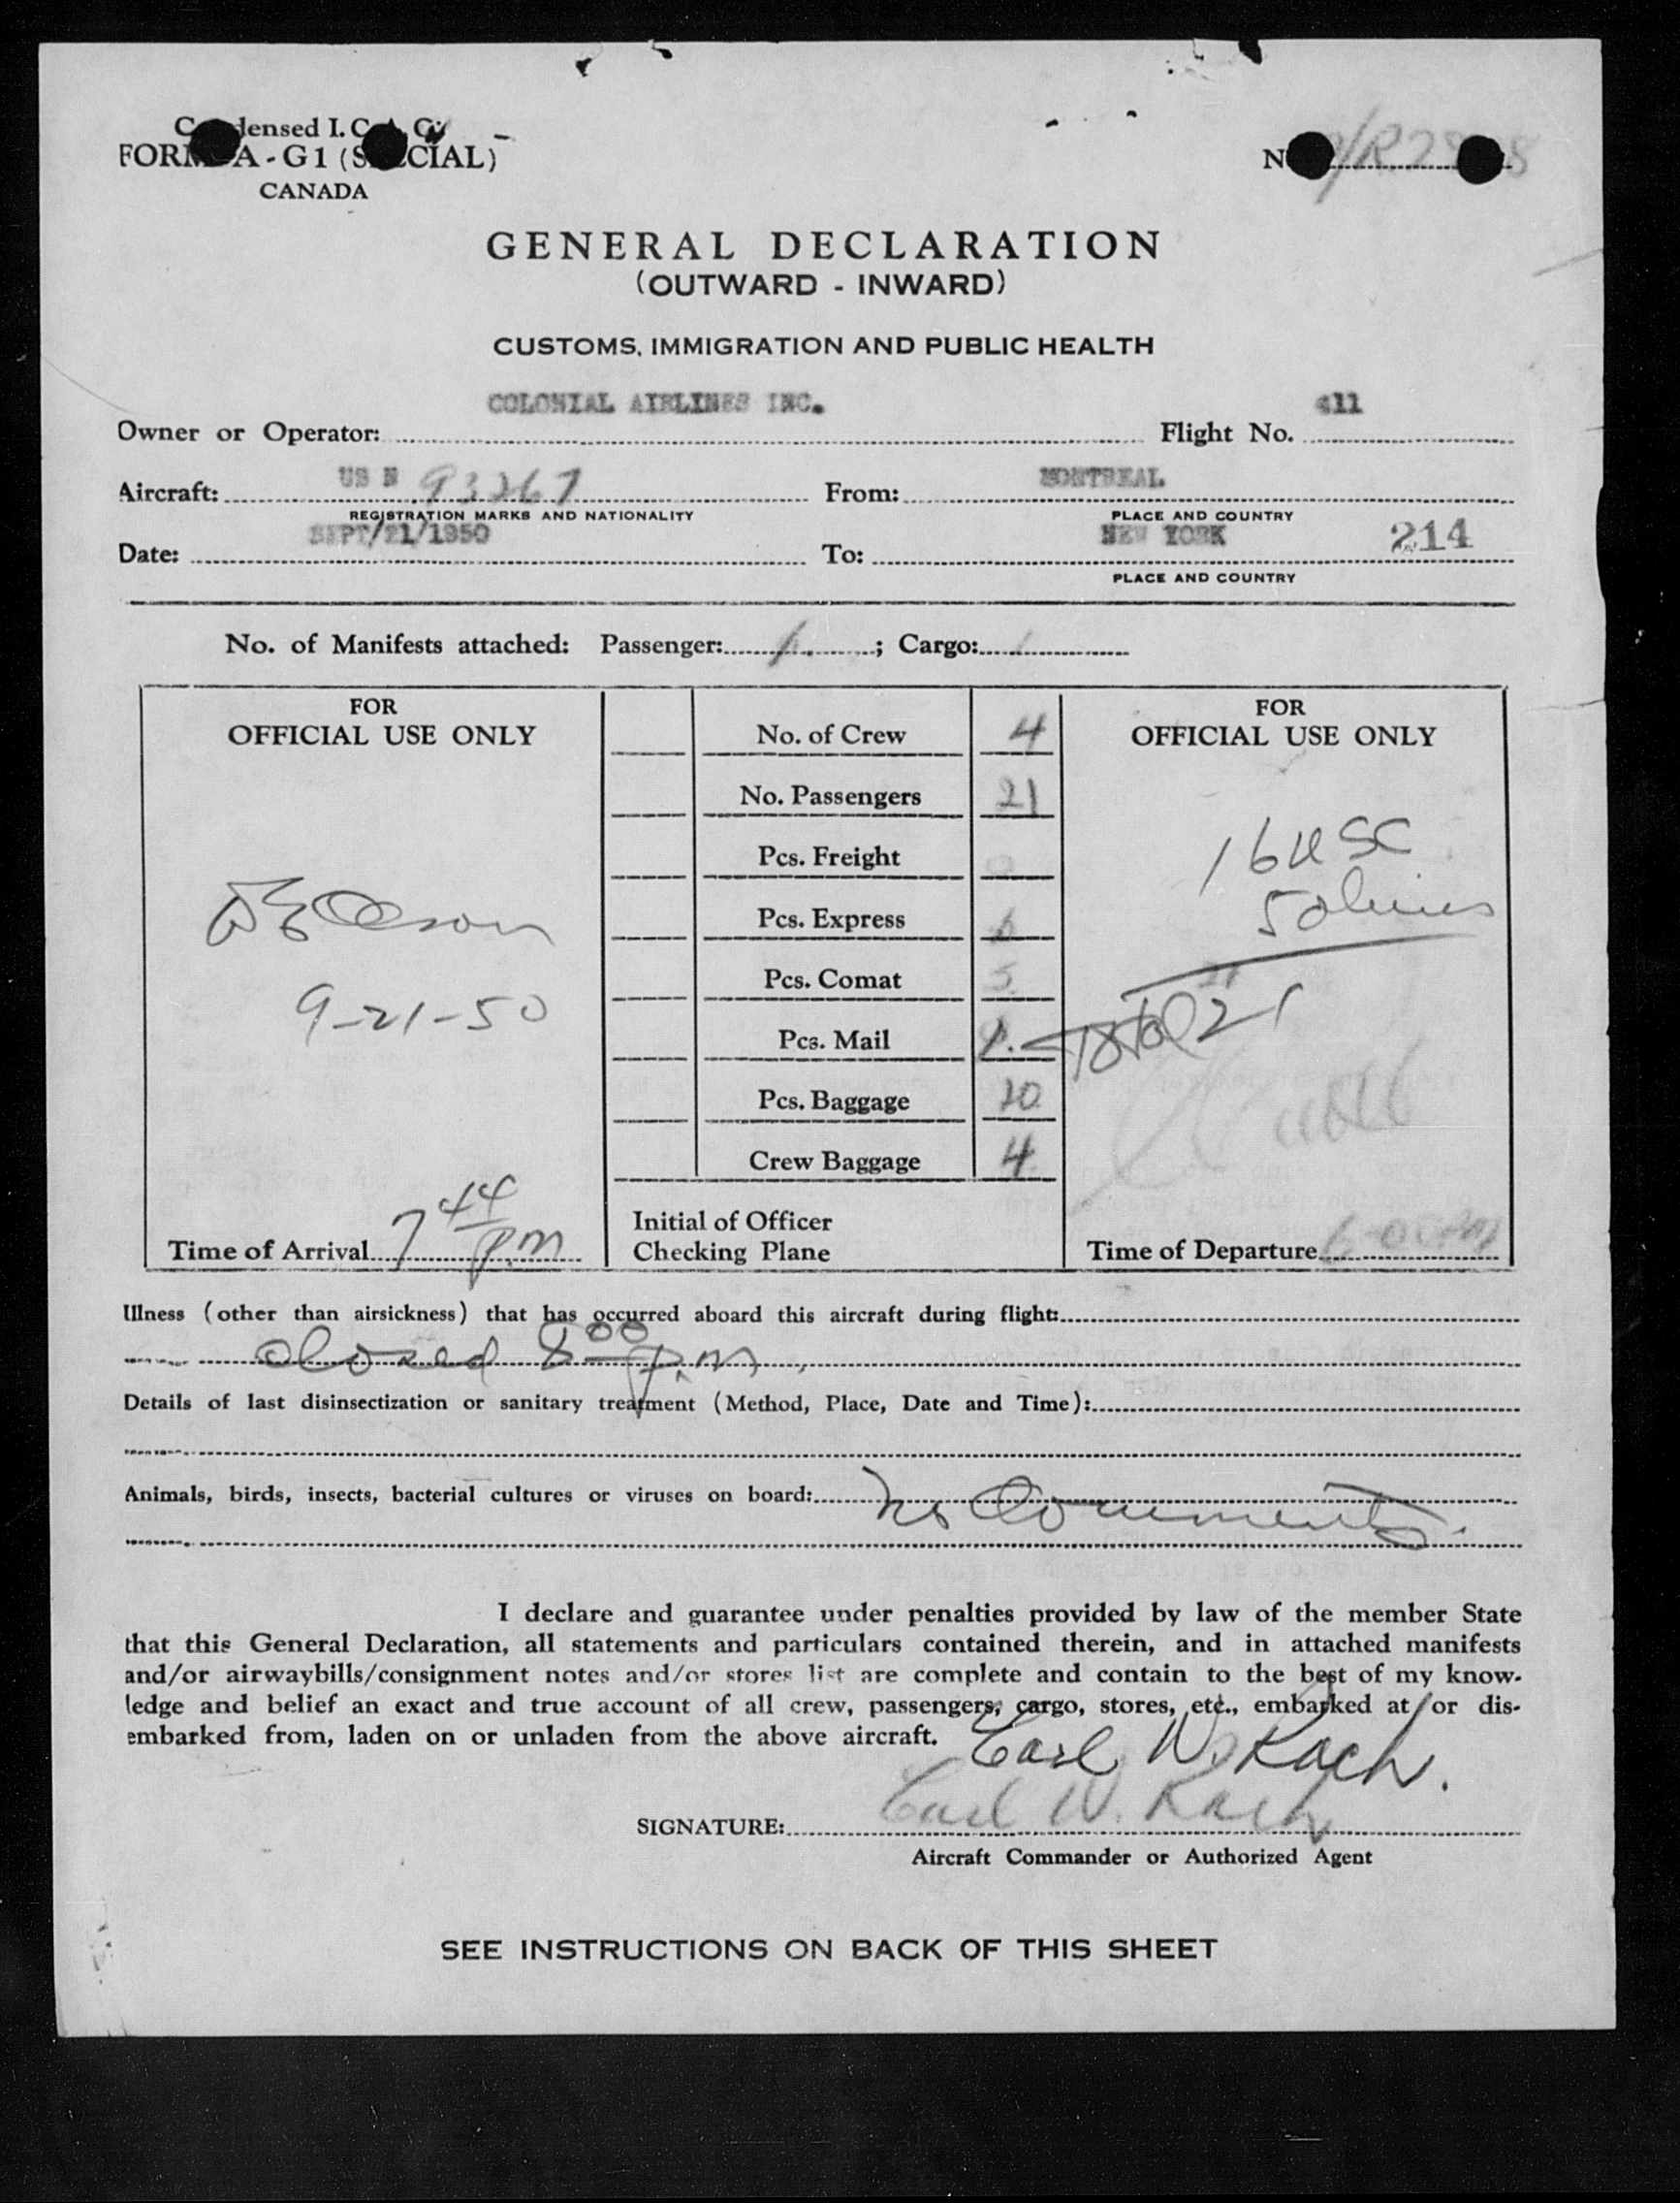 Condensed I. C. A. O.
FORM A - G1 (SPECIAL)
CANADA
GENERAL DECLARATION
(OUTWARD - INWARD)
CUSTOMS, IMMIGRATION AND PUBLIC HEALTH
COLONIAL AIRLINES INC. 411
Owner or Operator: Flight No.
US N 93267 MONTREAL
Aircraft: From:
REGISTRATION MARKS AND NATIONALITY PLACE AND COUNTRY
SEPT/21/1950 NEW YORK 214
Date: To:
PLACE AND COUNTRY
No. of Manifests attached: Passenger: 1 ; Cargo: 1
FOR
OFFICIAL USE ONLY
9-21-50
Time of Arrival 7 44 P.M
No. of Crew 4
No. Passengers 21
Pcs. Freight
Pcs. Express
Pcs. Comat 5
Pcs. Mail
Pcs. Baggage 20
Crew Baggage 4
Initial of Officer
Checking Plane
FOR
OFFICIAL USE ONLY
16 USC
5 aliens
Total 21
Time of Departure
Illness (other than airsickness) that has occurred aboard this aircraft during flight:
closed 8 00 P.M
Details of last disinsectization or sanitary treatment (Method, Place, Date and Time):
Animals, birds, insects, bacterial cultures or viruses on board: No Comments.
I declare and guarantee under penalties provided by law of the member State
that this General Declaration, all statements and particulars contained therein, and in attached manifests
and/or airwaybills/consignment notes and/or stores list are complete and contain to the best of my know-
ledge and belief an exact and true account of all crew, passengers, cargo, stores, etc., embarked at/or dis-
embarked from, laden on or unladen from the above aircraft.
Earl W. Koch.
Earl W. Koch
SIGNATURE:
Aircraft Commander or Authorized Agent
SEE INSTRUCTIONS ON BACK OF THIS SHEET